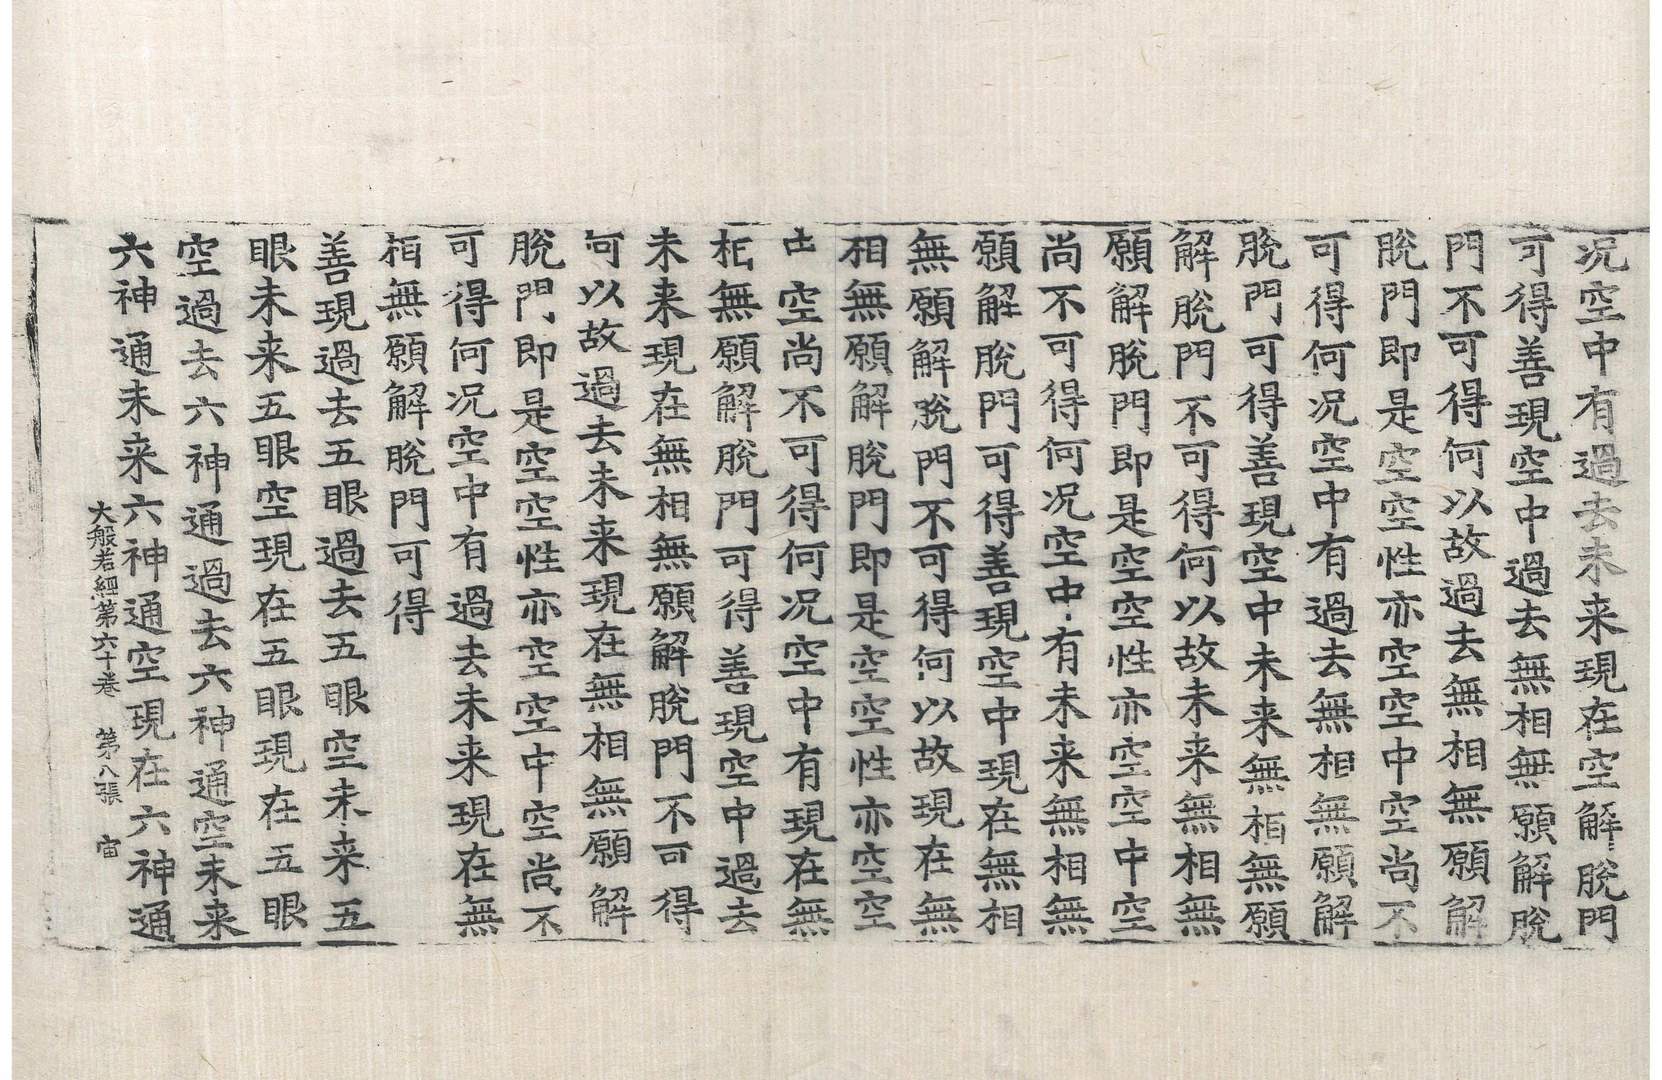 况空中有過去未来現在空解脫門
可得善現空中過去無相無願解脫
門不可得何以故過去無相無願解
脫門即是空空性亦空空中空尚不
可得何况空中有過去無相無願解
脫門可得善現空中未来無相無願
解脫門不可得何以故未来無相無
願解脫門即是空空性亦空空中空
尚不可得何况空中有未来無相無
願解脫門可得善現空中現在無相
無願解脫門不可得何以故現在無
相無願解脫門即是空空性亦空空
中空尚不可得何况空中有現在無
相無願解脫門可得善現空中過去
未来現在無相無願解脫門不可得
何以故過去未来現在無相無願解
脫門即是空空性亦空空中空尚不
可得何况空中有過去未来現在無
相無願解脫門可得
善現過去五眼過去五眼空未来五
眼未来五眼空現在五眼現在五眼
空過去六神通過去六神通空未来
六神通未来六神通空現在六神通
大般若經第六十卷 第八張 宙